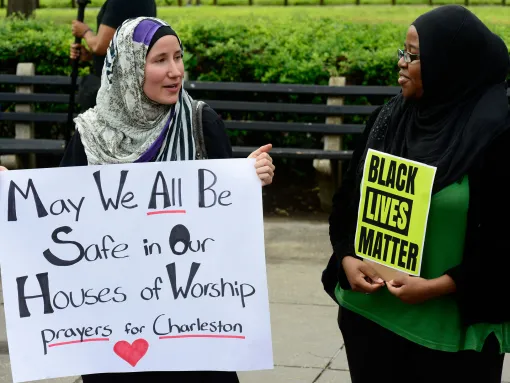 May We All Be
Safe in Our
Houses of Worship
prayers for Charleston
BLACK
LIVES
MATTER